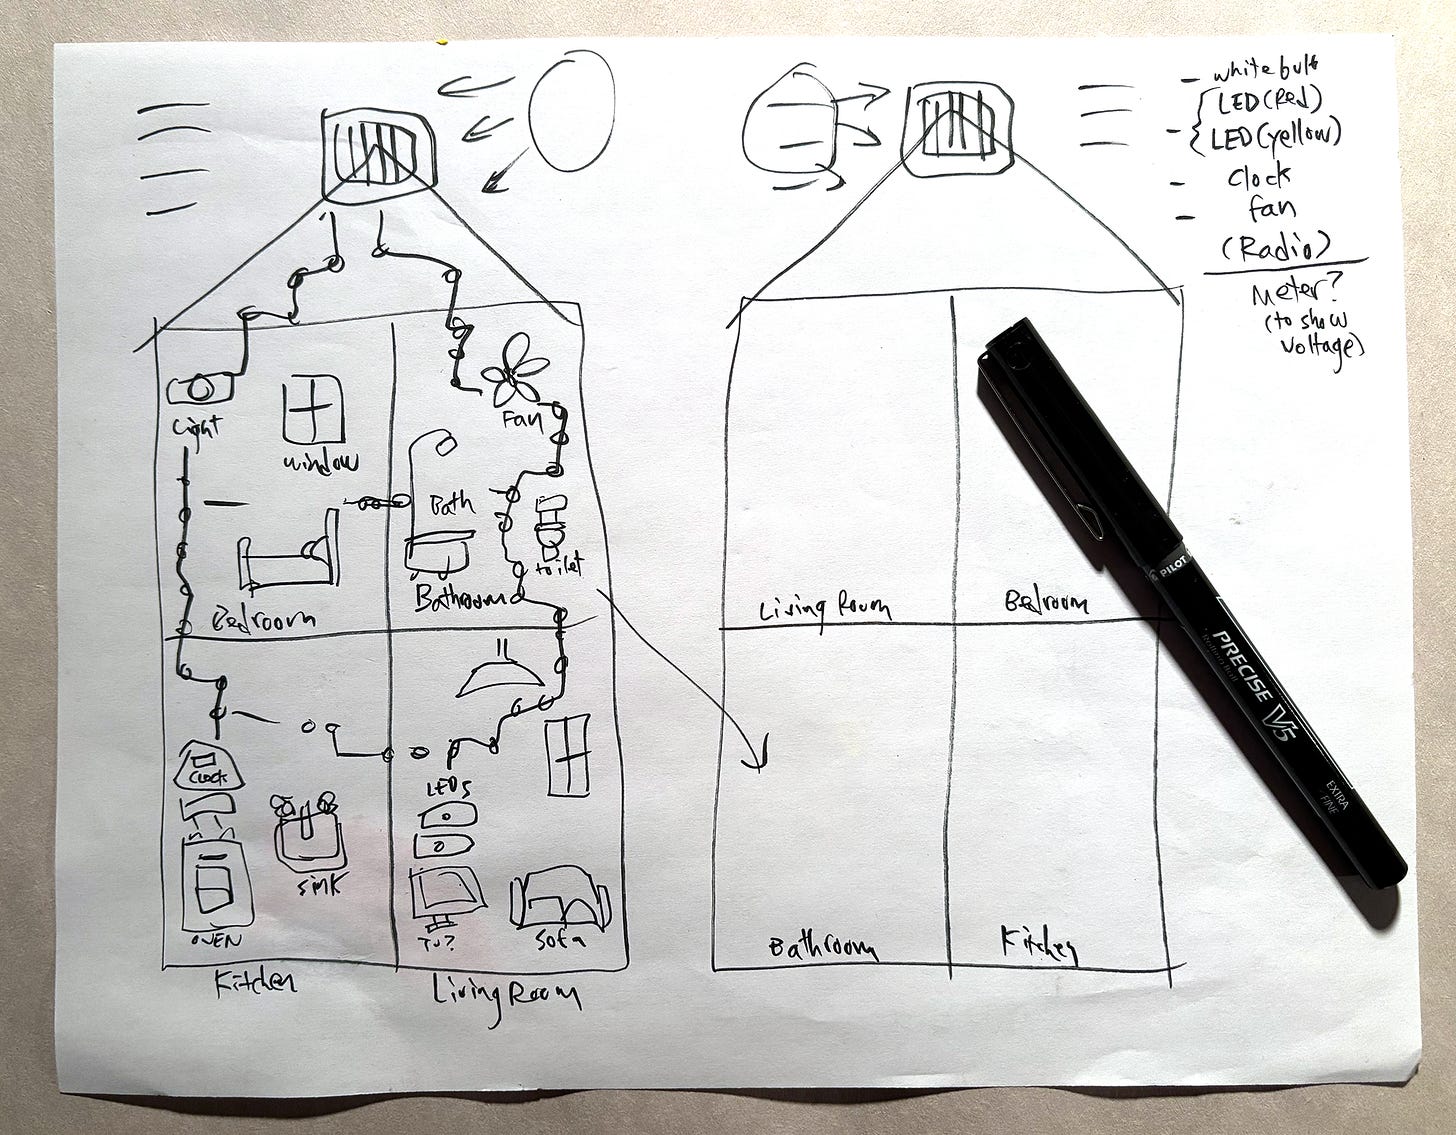 Light
window
Fan
Bath
toilet
Bedroom
Bathroom
CLOCK
LEDs
OVEN
sink
TV?
Sofa
Kitchen
Living Room
Living Room
Bedroom
Bathroom
Kitchen
- white bulb
LED (Red)
- LED (yellow)
- Clock
- fan
(Radio)
Meter?
(to show
voltage)
PILOT
PRECISE V5
Rolling Ball
EXTRA
FINE